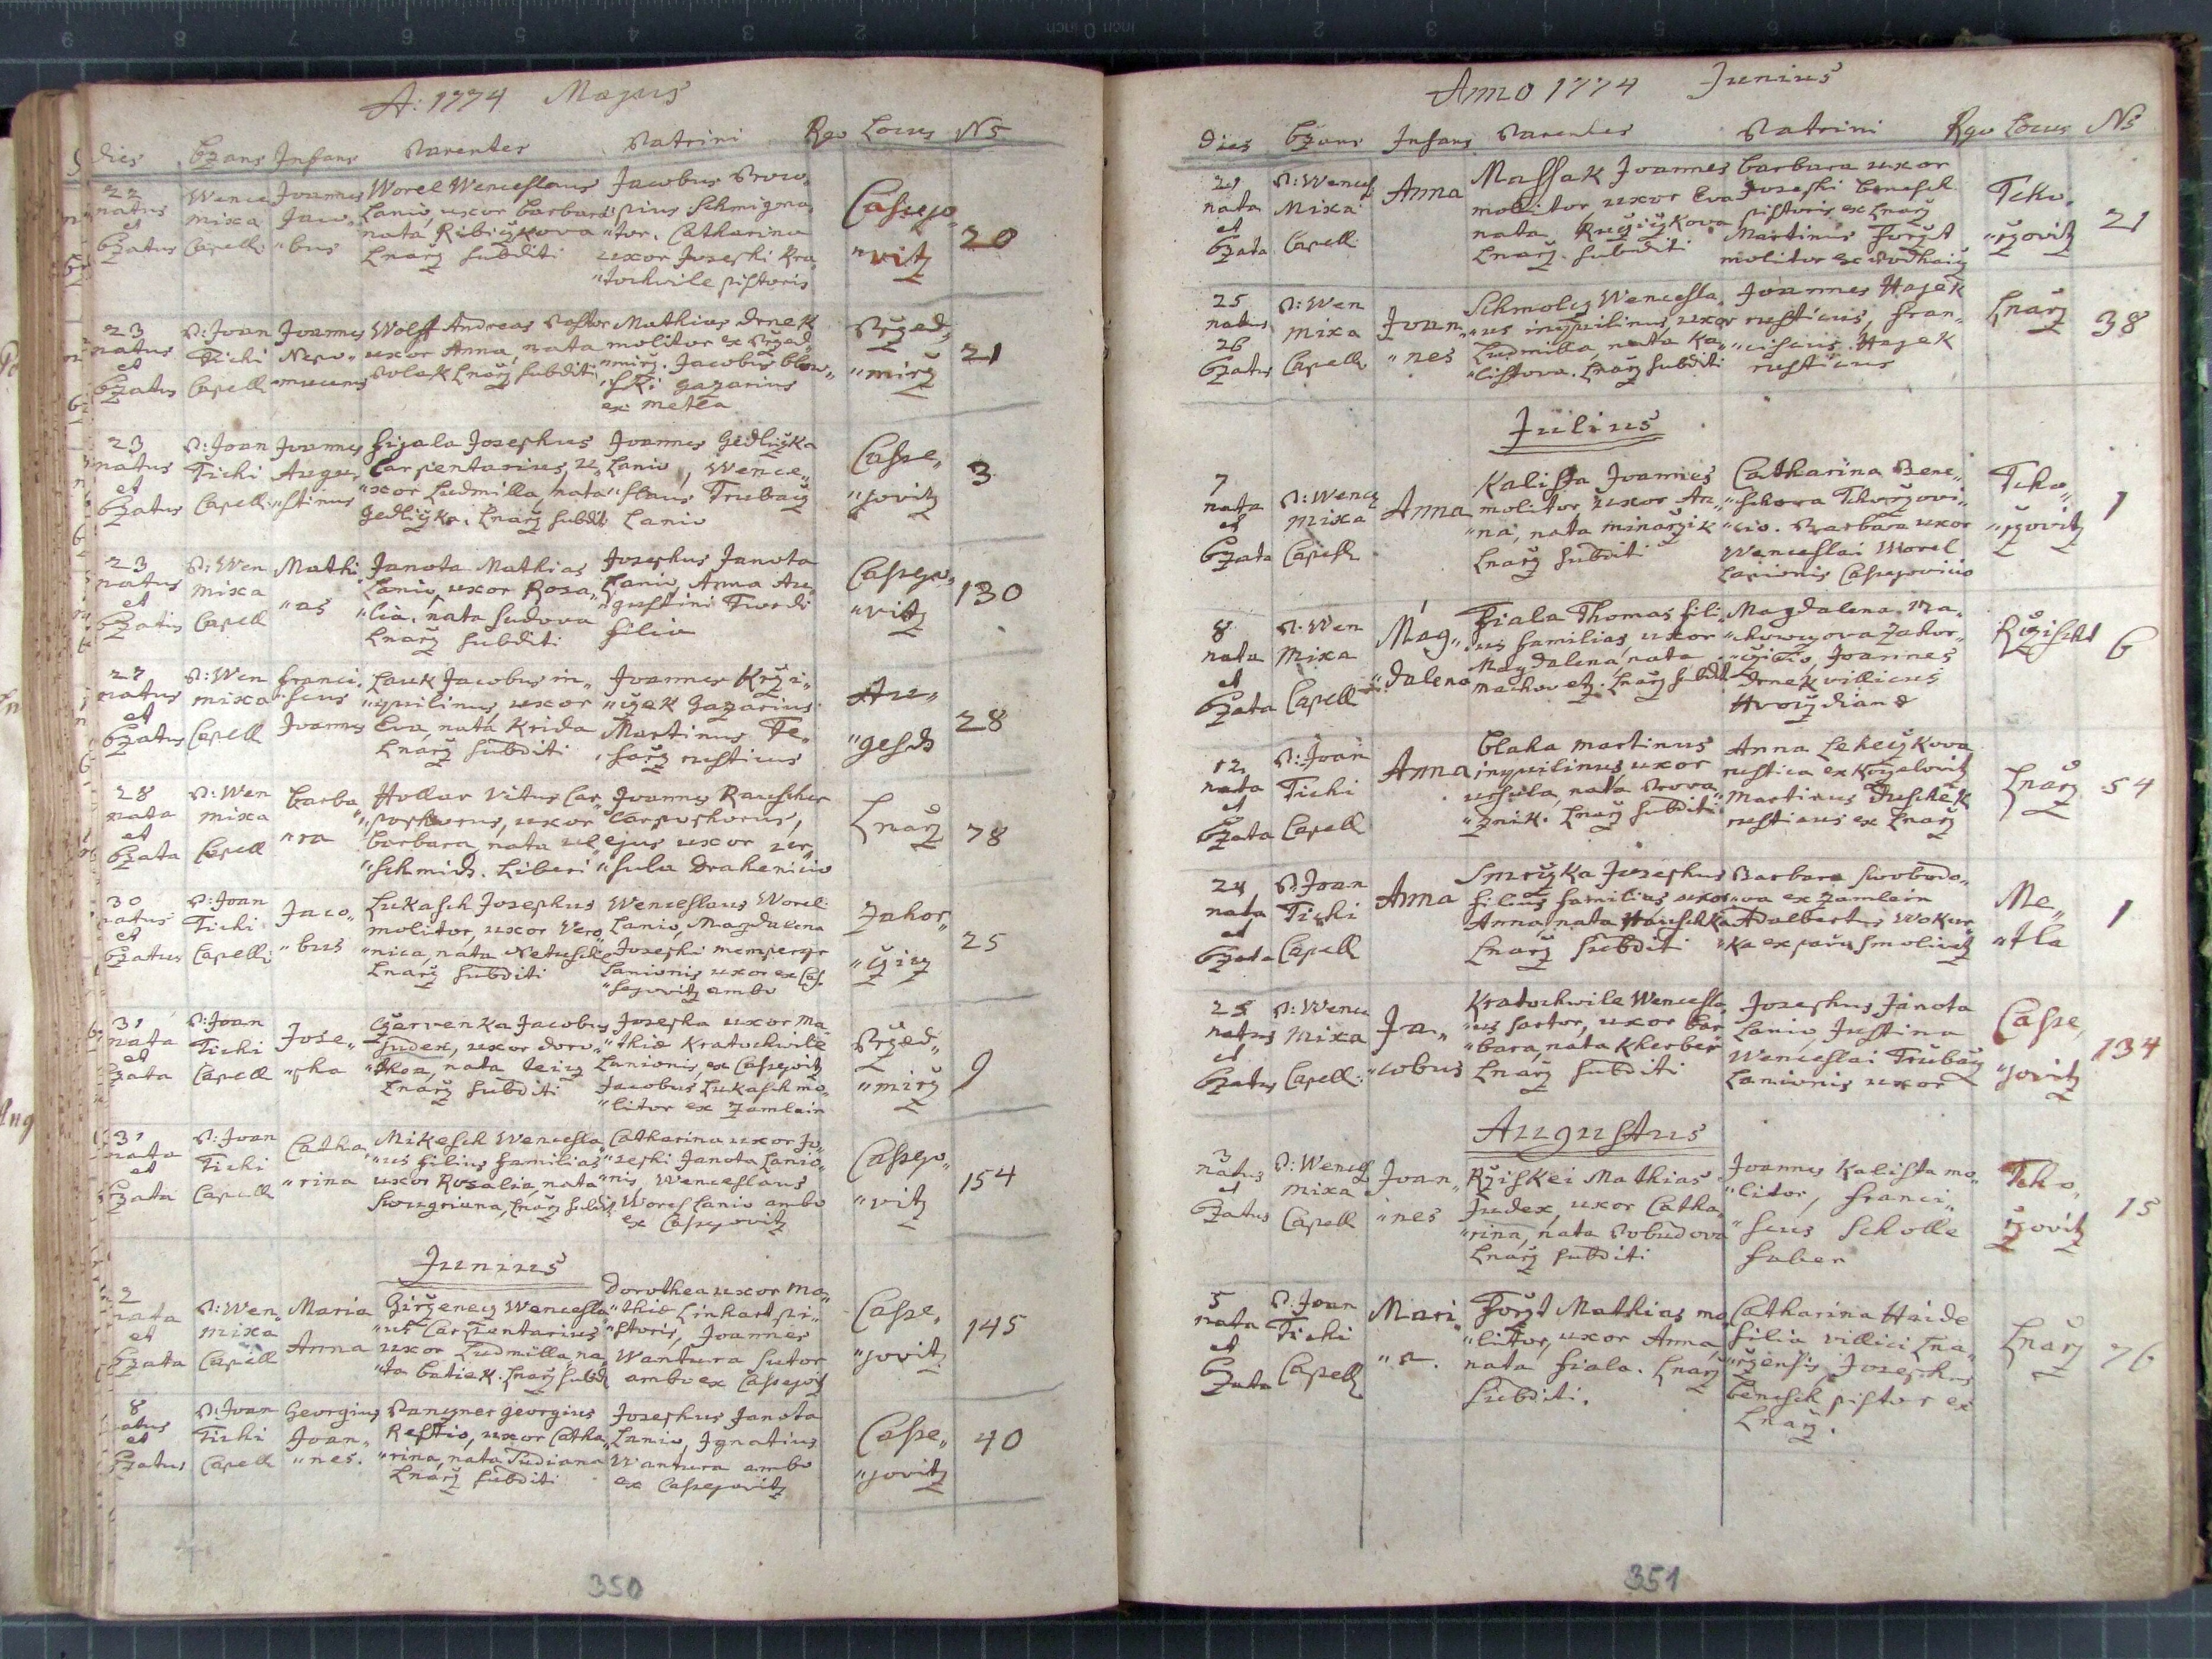 A: 1774 Majus
dies Bzans Infans Parentes Patrini Rgo Locus N5
22 natus et Bzatus
Wence Mixa Capell:
Joannes Jaco„ „bus
Worel Wenceslaus
Lanio, uxor Barbara
nata Ribiczkova
Lnarz subditi
Jacobus Proco„
„pius Schmigma„
„tor. Catharina
uxor Josephi Kra„
„tochwile pistoris
Cassejo„ „vitz
20
23 natus et Bzatus
P: Joan Tichi Capell
Joannes Nepo„ „mucenus
Wolff Andreas Pastor
uxor Anna, nata
Polak Lnarz subditi
Mathias Drnek
molitor ex Przed„
„mirz. Jacobus Blow„
„ski gazarius
ex Metla
Przed„ „mirz
21
23 natus et Bzatus
P: Joan Tichi Capell:
Joannes Augu„ „stinus
Fijala Josephus
Carpentarius, u„
„xor Ludmilla, nata
Jedliczka. Lnarz subditi
Joannes Gedliczka
Lanio, Wence„
„slaus Trubacz
Lanio
Casse„ „jovitz
3
23 natus et Bzatus
P: Wen Mixa Capell
Mathi „as
Janota Mathias
Lanio, uxor Rosa„
„lia, nata Sudova
Lnarz subditi
Josephus Janota
Lanio, Anna Au„
„gustini Twrdi
filia
Cassejo„ „vitz
130
27 natus et Bzatus
P: Wen Mixa Capell
Franci„ scus Joannes
Lauk Jacobus in„
„quilinus, uxor
Eva, nata Krida
Lnarz subditi
Joannes Krzi„
„czek Gazarius
Martinus Te„
„sarz rusticus
Au„ „gesds
28
28 nata et Bzata
P: Wen Mixa Capell
Barba„ „ra
Hollar Vitus Car„
„pophorus, uxor
Barbara, nata
„Schmids. Liberi
Joannes Rauscher
Carpophorus,
ejus uxor Ur„
„sula Drahenicio
Lnarz
78
30 natus et Bzatus
P: Joan Tichi Capell:
Jaco„ „bus
Lukasch Josephus
molitor, uxor Vero„
„nica, nata Netuschil
Lnarz subditi
Wenceslaus Worel
Lanio, Magdalena
Josephi Memperger
Lanionis uxor ex Cas„
„sejovitz ambo
Zahor„ „cziz
25
31 nata et Bzata
P: Joan Tichi Capell
Jose„ „pha
Czervenka Jacobus
Judex, uxor Doro„
„thea, nata
Lnarz subditi
Josepha uxor Ma„
„thiæ Kratochwile
Lanionis, ex Cassejovitz
Jacobus Lukasch mo„
„litor ex Zamlein
Przed„ „mirz
9
31 nata et Bzata
P: Joan Tichi Capell
Catha„ „rina
Mikesch Wencesla„
„us filius familias
uxor Rosalia, nata
Lnarz subdit
Catharina uxor Jo„
„sephi Janota Lanio„
„nis, Wenceslaus
Worel Lanio ambo
ex Cassejovitz
Cassejo„ „vitz
154
Junius
2 nata et Bzata
P: Wen Mixa Capell
Maria Anna
Girzenecz Wencesla„
„us Carpentarius
uxor Ludmilla, na„
„ta Batiek. Lnarz subd
Dorothea uxor Ma„
„thiæ Linhart pi„
„storis, Joannes
Wantura Sutor
ambo ex Cassejov
Casse„ „jovitz
145
8 natus et Bzatus
P: Joan Tichi Capell
Georgius Joan„ „nes.
Panczner Georgius
Restio, uxor Catha„
„rina, nata Tudiana
Lnarz subditi
Josephus Janota
Lanio, Ignatius
Wantura ambo
ex Cassejovitz
Casse„ „jovitz
40
350
Anno 1774 Junius
Dies Bzans Infans Parentes Patrini Rgo Locus N5
21 nata et Bzata
P: Wencesl: Mixa Capell:
Anna
Massak Joannes
molitor, uxor Eva
nata
Lnarz. subditi
Barbara uxor
Josephi Benesch
pistoris ex Lnarz
Martinus Forzt
molitor ex Podhaig
Tcho„ „rzovitz
21
25 natus 26 Bzatus
P: Wen Mixa Capell.
Joan„ „nes
Schmolcz Wencesla„
„us inquilinus, uxor
Ludmilla, nata Ka„
„listova. Lnarz subditi
Joannes Hajek
rusticus, Fran„
„ciscus Hajek
rusticus
Lnarz
38
Julius
7 nata et Bzata
P: Wencz Mixa Capell
Anna
Kalista Joannes
molitor, uxor An„
„na, nata Minarzik
Lnarz subditi
Catharina Bene„
„schova Tchorzovi„
„cio. Barbara uxor
Wenceslai Worel
Lanionis Cassejovicio
Tcho„ „rzovitz
1
8 nata et Bzata
P: Wen Mixa Capell
Mag„ „dalena
Fiala Thomas fili„
„us familias, uxor
Magdalena, nata
Machovetz. Lnarz subdit
Magdalena Ma„
„chowczova Zahor„
„czicio, Joannes
Drnek villicus
Hvoizdian
Rzischt
6
12 nata et Bzata
P: Joan Tichi Capell
Anna
Blaha Martinus
inquilinus uxor
Ursula, nata Prova„
„znik. Lnarz subditi
Anna Leheczkova
rustica ex Kozlovitz
Martinus Duschek
rusticus ex Lnarz
Lnarz
54
24 nata et Bzata
P Joan Tichi Capell
Anna
Smrczka Josephus
filius familias, uxor
Anna, nata Hauschka
Lnarz subditi
Barbara Swobodo„
„va ex Zamlein
Adalbertus Wokur„
„ka ex parva Smolivetz
Me„ „tla
1
25 natus et Bzatus
P: Wenc Mixa Capell:
Ja„ „cobus
Kratochwile Wencesla„
„us sartor, uxor Bar„
„bara, nata Kherber
Lnarz subditi
Josephus Janota
Lanio, Justina
Wenceslai Trubacz
Lanionis uxor
Casse„ „jovitz
134
Augustus
3 natus et Bzatus
P: Wencesl Mixa Capell
Joan„ „nes
Rziskei Mathias
Judex, uxor Catha„
„rina, nata Pobudova
Lnarz subditi
Joannes Kalista mo„
„litor, Franci„
„scus Scholle
faber
Tcho„ rzovitz
15
5 nata et Bzata
P: Joan Tichi Capell
Mari „a.
Forzt Mathias mo„
„litor, uxor Anna,
nata Fiala. Lnarz
subditi.
Catharina Haide
filia villici Lna„
„rzensis, Josephus
Benesch pistor ex
Lnarz.
Lnarz
76
351